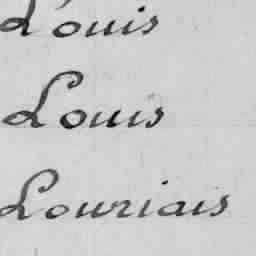 Louis
Louis
Louriais